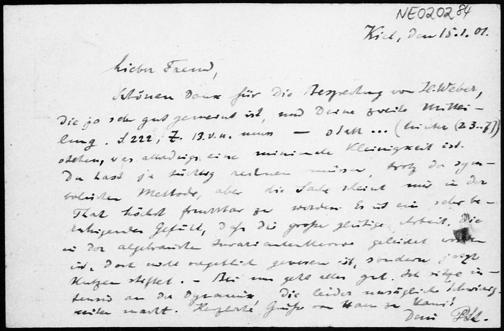 NE020284
Kiel, den 15.1.01.
Lieber Freund,
schönen Dank für die Besprechung von H. Weber,
die ja sehr gut gemeint ist, und Deine zweite Mittei-
lung. S. 222, Z. 13 v. u. muss — statt ...
stehen, was allerdings eine minimale Kleinigkeit ist.
Du hast ja tüchtig rechnen müssen, trotz der sym-
bolischen Methode, aber die Sache scheint mir in der
That höchst fruchtbar zu werden. Es ist ein sehr be-
ruhigendes Gefühl, daß die große geistige Arbeit, die
in der algebraischen Invariantentheorie geleistet worden
ist, doch nicht vergeblich gewesen ist, sondern jetzt
Nutzen stiftet. — Bei uns geht alles gut. Ich sitze in-
tensiv an der Dynamik, die leider unsägliche Schwierig-
keiten macht. Herzliche Grüße von Haus zu Haus!
Dein